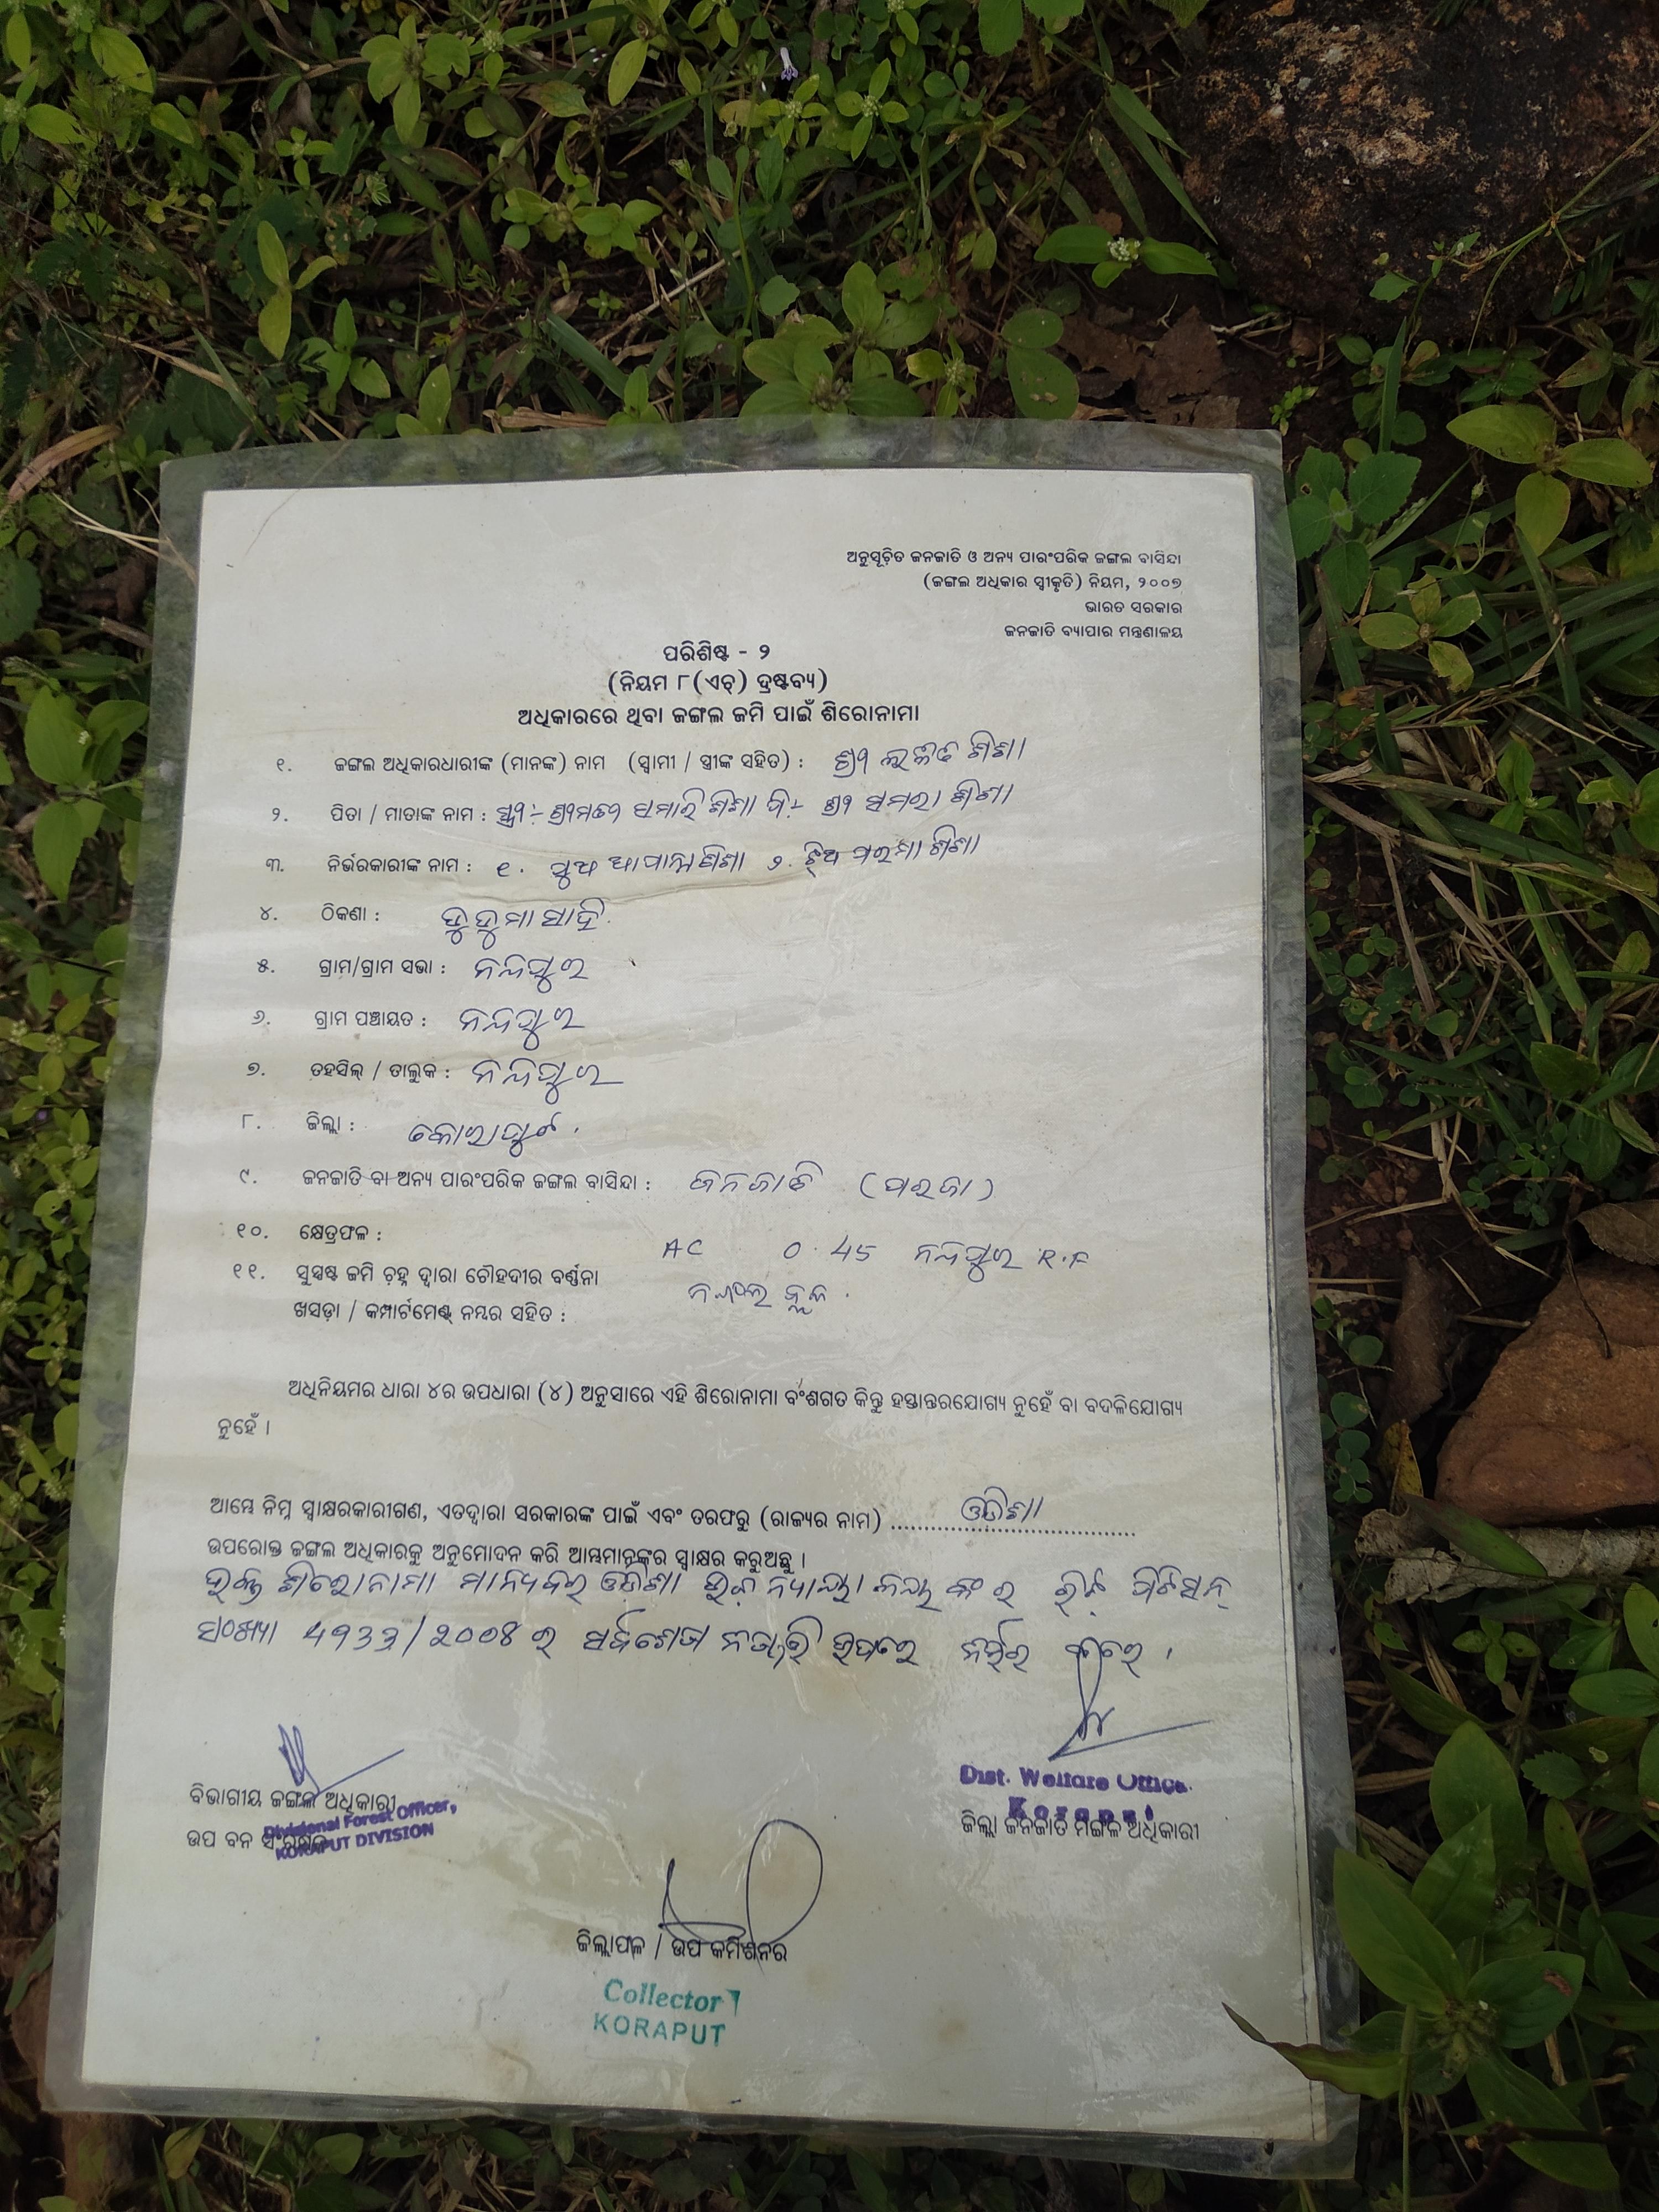 ଅନୁସୂଚିତ ଜନଜାତି ଓ ଅନ୍ୟ ପାରଂପରିକ ଜଙ୍ଗଲ ବାସିନ୍ଦା
(ଜଙ୍ଗଲ ଅଧିକାର ସ୍ୱୀକୃତି) ନିୟମ, ୨୦୦୭
ଭାରତ ସରକାର
ଜନଜାତି ବ୍ୟାପାର ମନ୍ତ୍ରଣାଳୟ
ପରିଶିଷ୍ଟ - ୨
(ନିୟମ ୮(ଏଚ୍) ଦ୍ରଷ୍ଟବ୍ୟ)
ଅଧିକାରରେ ଥିବା ଜଙ୍ଗଲ ଜମି ପାଇଁ ଶିରୋନାମା
୧. ଜଙ୍ଗଲ ଅଧିକାରଧାରୀଙ୍କ (ମାନଙ୍କ) ନାମ (ସ୍ୱାମୀ / ସ୍ତ୍ରୀଙ୍କ ସହିତ) : ଶ୍ରୀ ଶିଶା
୨. ପିତା / ମାତାଙ୍କ ନାମ : ସ୍ତ୍ରୀ:- ଶ୍ରୀମତୀ ସମାରି ଶିଶା ପି:- ଶ୍ରୀ ସମରା ଶିଶା
୩. ନିର୍ଭରକାରୀଙ୍କ ନାମ : ୧. ପୁଅ ଶିଶା ୨. ଝିଅ ଶିଶା
୪. ଠିକଣା : ଡୁଡୁମା ସାହି
୫. ଗ୍ରାମ/ଗ୍ରାମ ସଭା : ନନ୍ଦପୁର
୬. ଗ୍ରାମ ପଞ୍ଚାୟତ : ନନ୍ଦପୁର
୭. ତହସିଲ୍ / ତାଲୁକ : ନନ୍ଦପୁର
୮. ଜିଲ୍ଲା : କୋରାପୁଟ.
୯. ଜନଜାତି ବା ଅନ୍ୟ ପାରଂପରିକ ଜଙ୍ଗଲ ବାସିନ୍ଦା : ଜନଜାତି (ପରଜା)
୧୦. କ୍ଷେତ୍ରଫଳ :
AC 0.45 ନନ୍ଦପୁର R.F
୧୧. ସୁସ୍ପଷ୍ଟ ଜମି ଚିହ୍ନ ଦ୍ୱାରା ଚୌହଦୀର ବର୍ଣ୍ଣନା
ଖସଡ଼ା / କମ୍ପାର୍ଟମେଣ୍ଟ୍ ନମ୍ବର ସହିତ :
ଅଧିନିୟମର ଧାରା ୪ର ଉପଧାରା (୪) ଅନୁସାରେ ଏହି ଶିରୋନାମା ବଂଶଗତ କିନ୍ତୁ ହସ୍ତାନ୍ତରଯୋଗ୍ୟ ନୁହେଁ ବା ବଦଳିଯୋଗ୍ୟ
ନୁହେଁ ।
ଆମ୍ଭେ ନିମ୍ନ ସ୍ୱାକ୍ଷରକାରୀଗଣ, ଏତଦ୍ୱାରା ସରକାରଙ୍କ ପାଇଁ ଏବଂ ତରଫରୁ (ରାଜ୍ୟର ନାମ) ଓଡିଶା
ଉପରୋକ୍ତ ଜଙ୍ଗଲ ଅଧିକାରକୁ ଅନୁମୋଦନ କରି ଆମ୍ଭମାନଙ୍କର ସ୍ୱାକ୍ଷର କରୁଅଛୁ ।
ଉକ୍ତ ଶିରୋନାମା ମାନ୍ୟବର ଓଡିଶା ଉଚ୍ଚ ନ୍ୟାୟାଳୟଙ୍କର ରିଟ୍ ପିଟିସନ୍
ସଂଖ୍ୟା 4933/2008 ର ଉପରେ ନିର୍ଭର କରେ ।
ବିଭାଗୀୟ ଜଙ୍ଗଲ ଅଧିକାରୀ
Divisional Forest Officer,
ଉପ ବନ ସଂରକ୍ଷକ
KORAPUT DIVISION
Dist. Welfare Office.
Koraput
ଜିଲ୍ଲା ଜନଜାତି ମଙ୍ଗଳ ଅଧିକାରୀ
ଜିଲ୍ଲାପାଳ / ଉପ କମିଶନର
Collector
KORAPUT